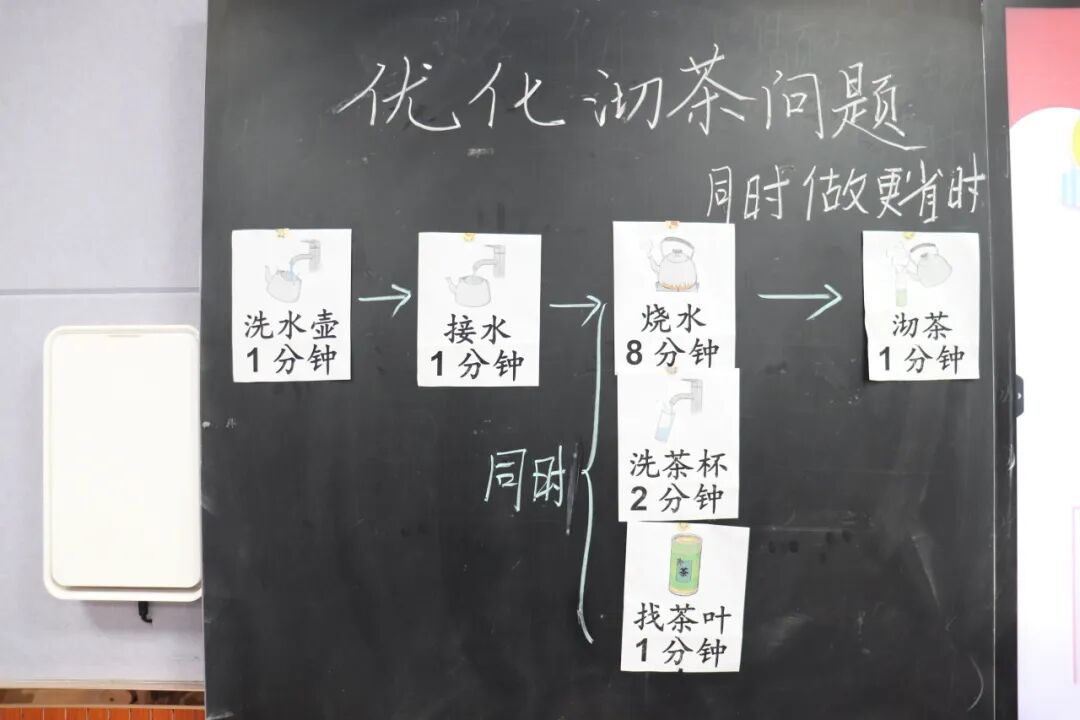 优化沏茶问题
同时做更省时
洗水壶
1分钟
接水
1分钟
烧水
8分钟
沏茶
1分钟
同时
洗茶杯
2分钟
茶
找茶叶
1分钟